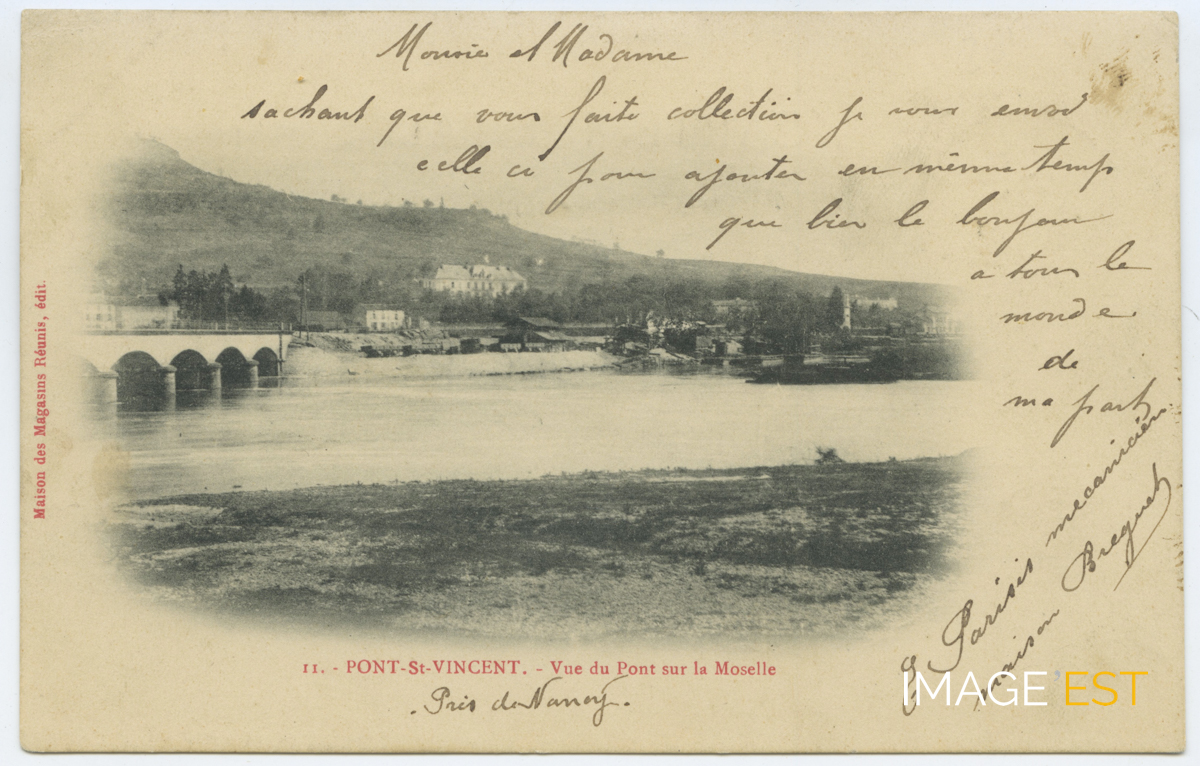 Monsie et Madame
sachant que vous faite collection je vous envoi
celle ci pour ajouter en même temp
que bien le bonjour
a tous le
monde
de
ma part
E Parisis mecanicien
maison Breguet
Maison des Magasins Réunis, édit.
11. - PONT-St-VINCENT. - Vue du Pont sur la Moselle
. Près de Nancy .
IMAGE'EST